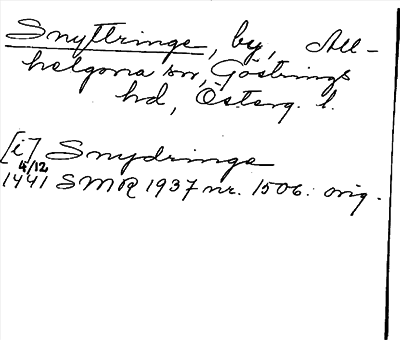 Snyttringe, by, All-
helgona sn, Göstrings
hd, Österg. l.
[i] Snydringe
4/12
1441 SMR 1937 nr. 1506. orig.